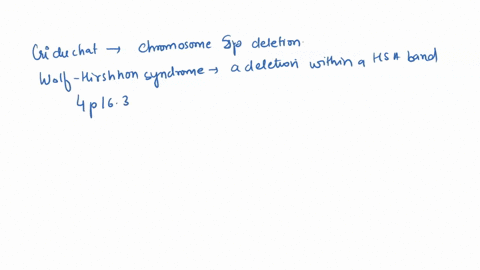 Cri du chat → chromosome 5p deletion.
Wolf-Hirshhon syndrome → a deletion within a HSA band
4p16.3